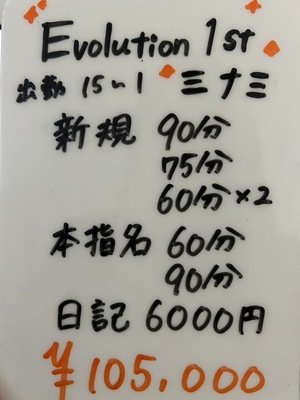 Evolution 1st
出勤 15〜1 ミナミ
新規 90分
75分
60分×2
本指名 60分
90分
日記 6000円
¥105,000